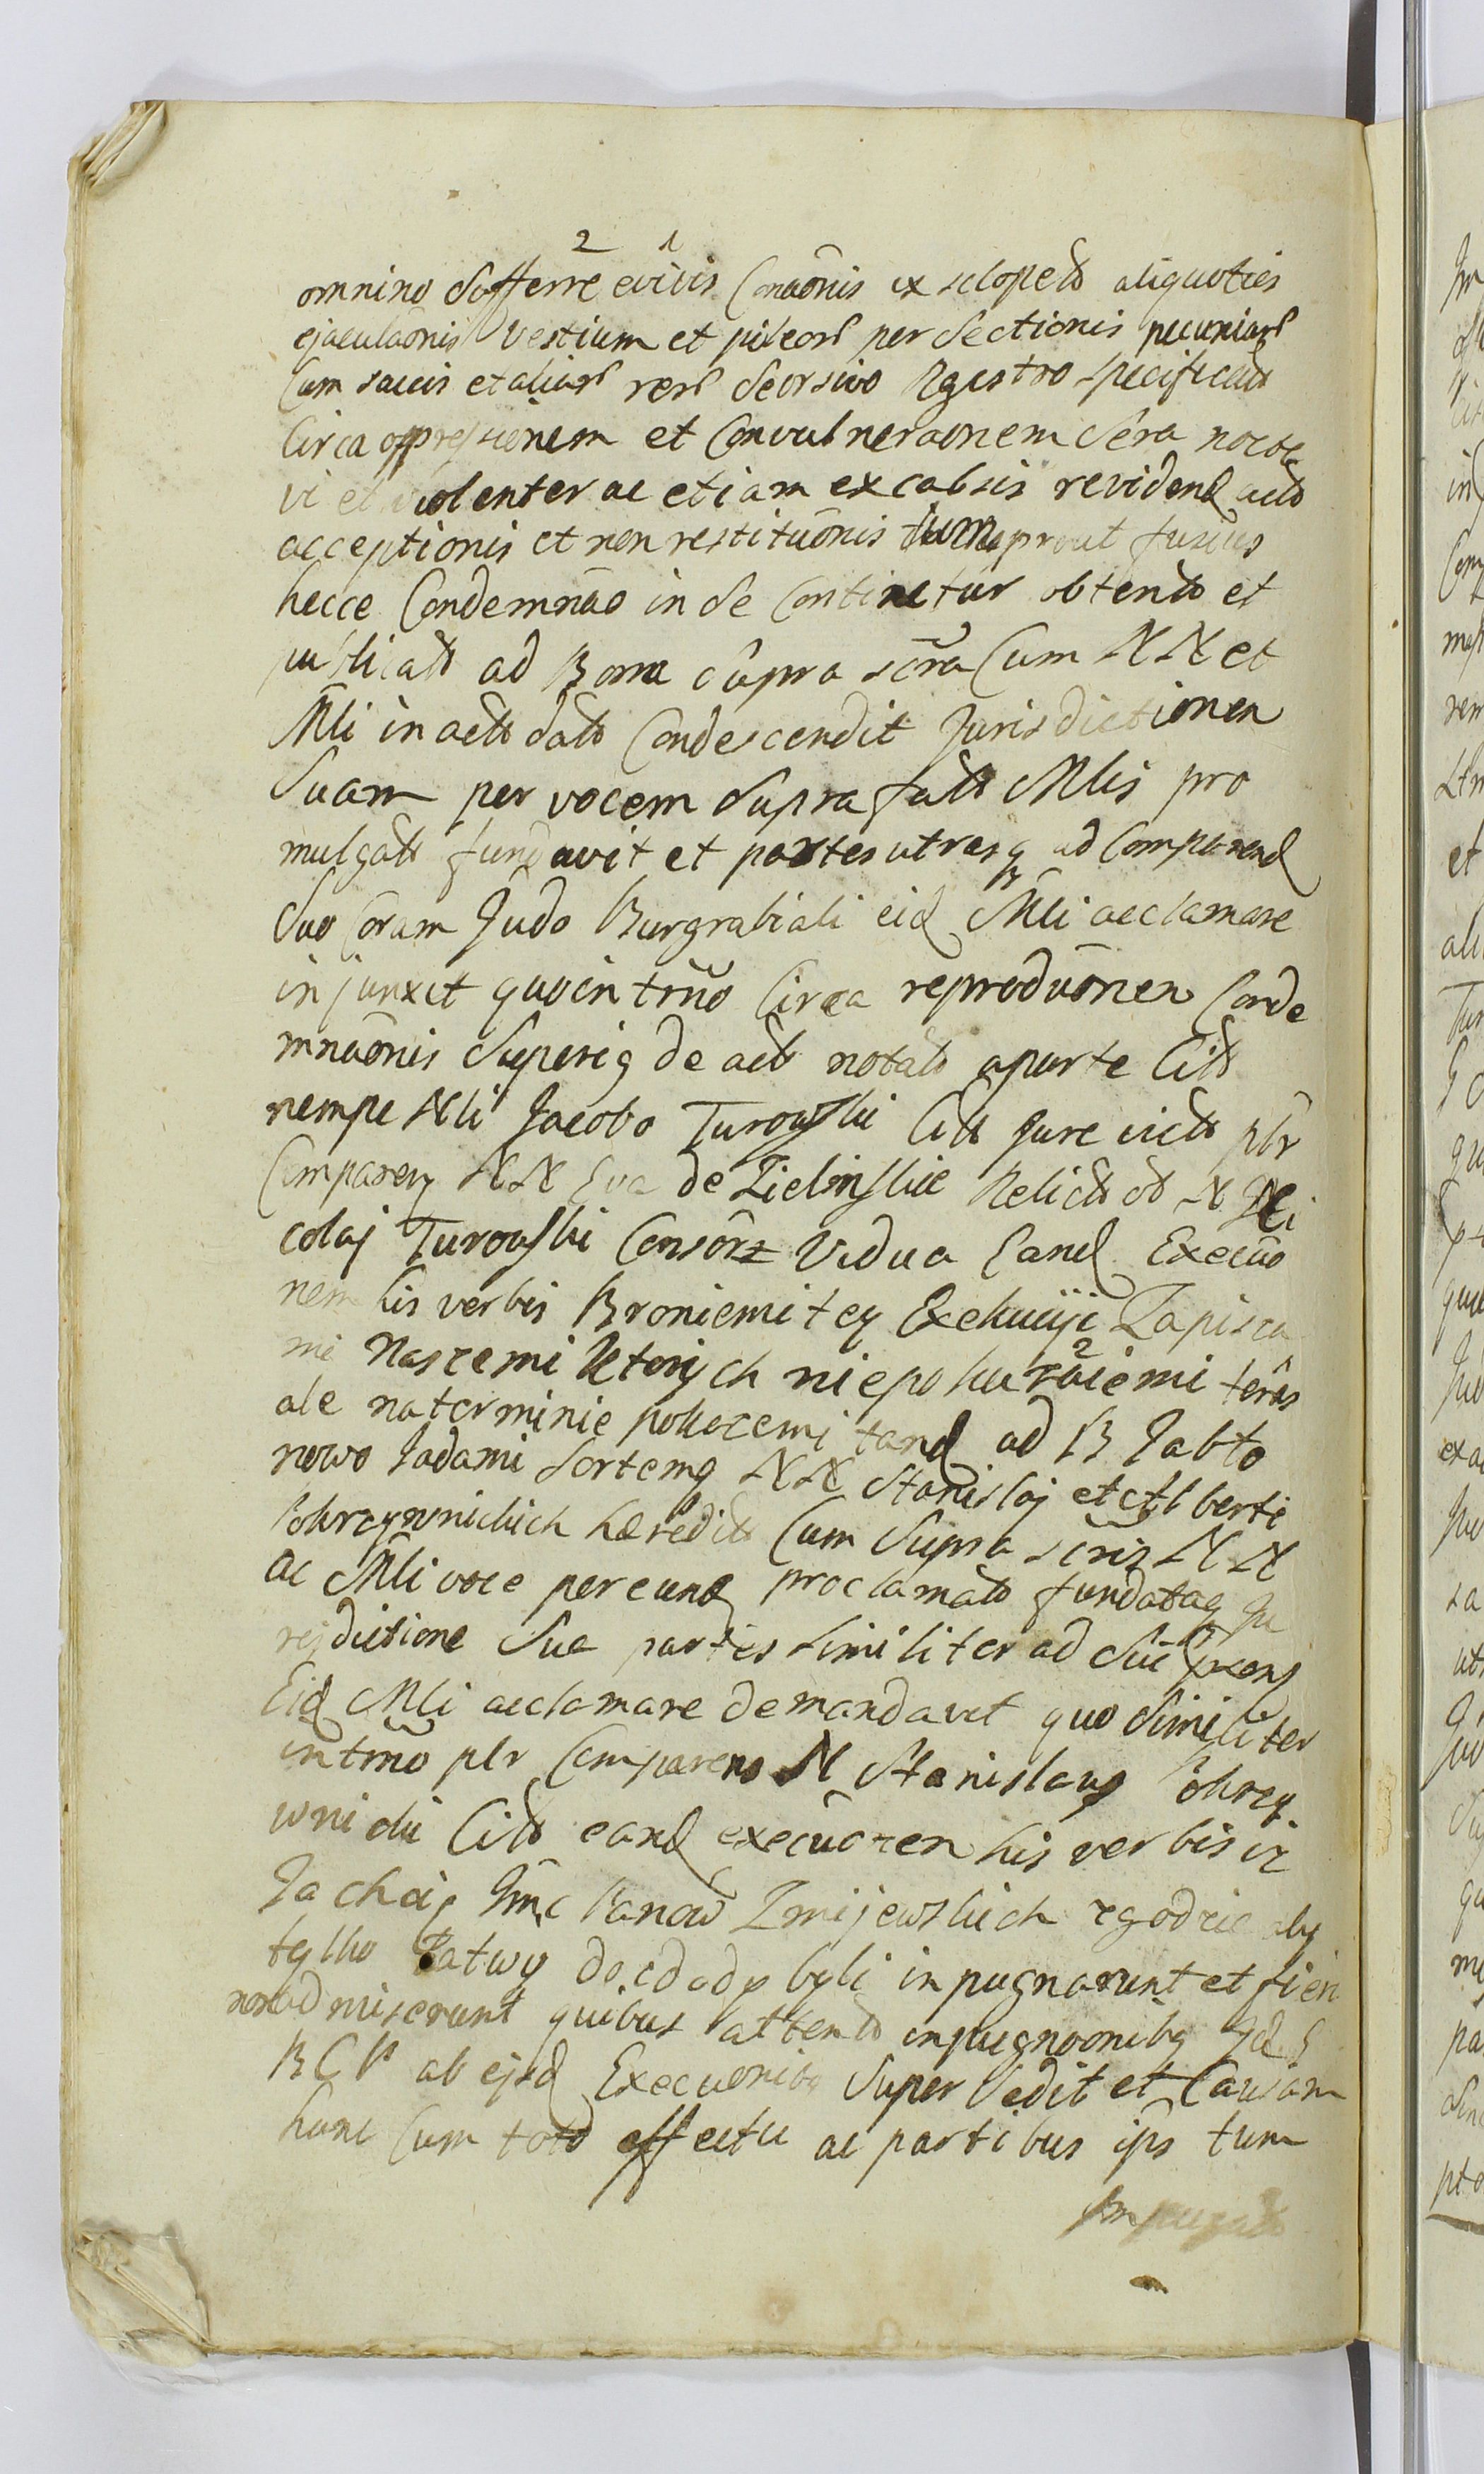 2 1
omnino Sufferre evivis Conaōnis ex sclopeto aliquoties
ejaculaōnis Vestium et pileor per Sectionis pecuniar
Cum saccis et aliar rer Seorsivo Regestro specificato
Circa oppressionem et Convulneraonem Sera nocte
vi et violenter ac etiam ex cabsis revidend acto
acceptionis et non restituōnis prout fusius
hecce Condemnāo in se Continetur obtento et
publicato ad Bona supra scra Cum NN et
Mli in acto dato Condescendit Jurisdictionem
Suam per vocem Supra fati Mlis pro
mulgato fundavit et partes utrasq ad Comparend
Suo Coram Judo Burgrabiali eid Mli acclamare
injunxit quo in trno Circa reproduōnem Conde
mnaōnis Superiq de acto notato a parte Citt
nempe Nli Jacobo Turowski Citt Jure victo pltr
Comparen NN Eva de Zielinskie Relicta od N Ni
colaj Turowski Consors Vidua Eand Execuo
nem his verbis Broniemi tey Exekucyi Zapisca
mi Naszemi Ktorych niepokazuiemi teras
ale naterminie pokazemi tand ad B Jabło
nowo Jadami Sortemq NN Stanislaj et Alberti
Pokrzywnickich hæredit Cum Supra scris NN
ac Mli voce per eund proclamato fundataq Ju
risdictione Sua partes similiter ad Sui
Eid Mli acclamare demandavit quo Similiter
in trno pltr Comparens N Stanislaus Pokrzy
wnicki Citt eand execuonem his verbis
Ja chcią Jmc Panow Zmijewskich zgodzic aby
tylko Łatwy do byli inpugnarunt et fieri
non admiserunt quibus attento inpugnaonibq Jd
B C P ab ejsd Execuonibq Super Sedit et Causam
hanc Cum toto effectu ac partibus ips tum